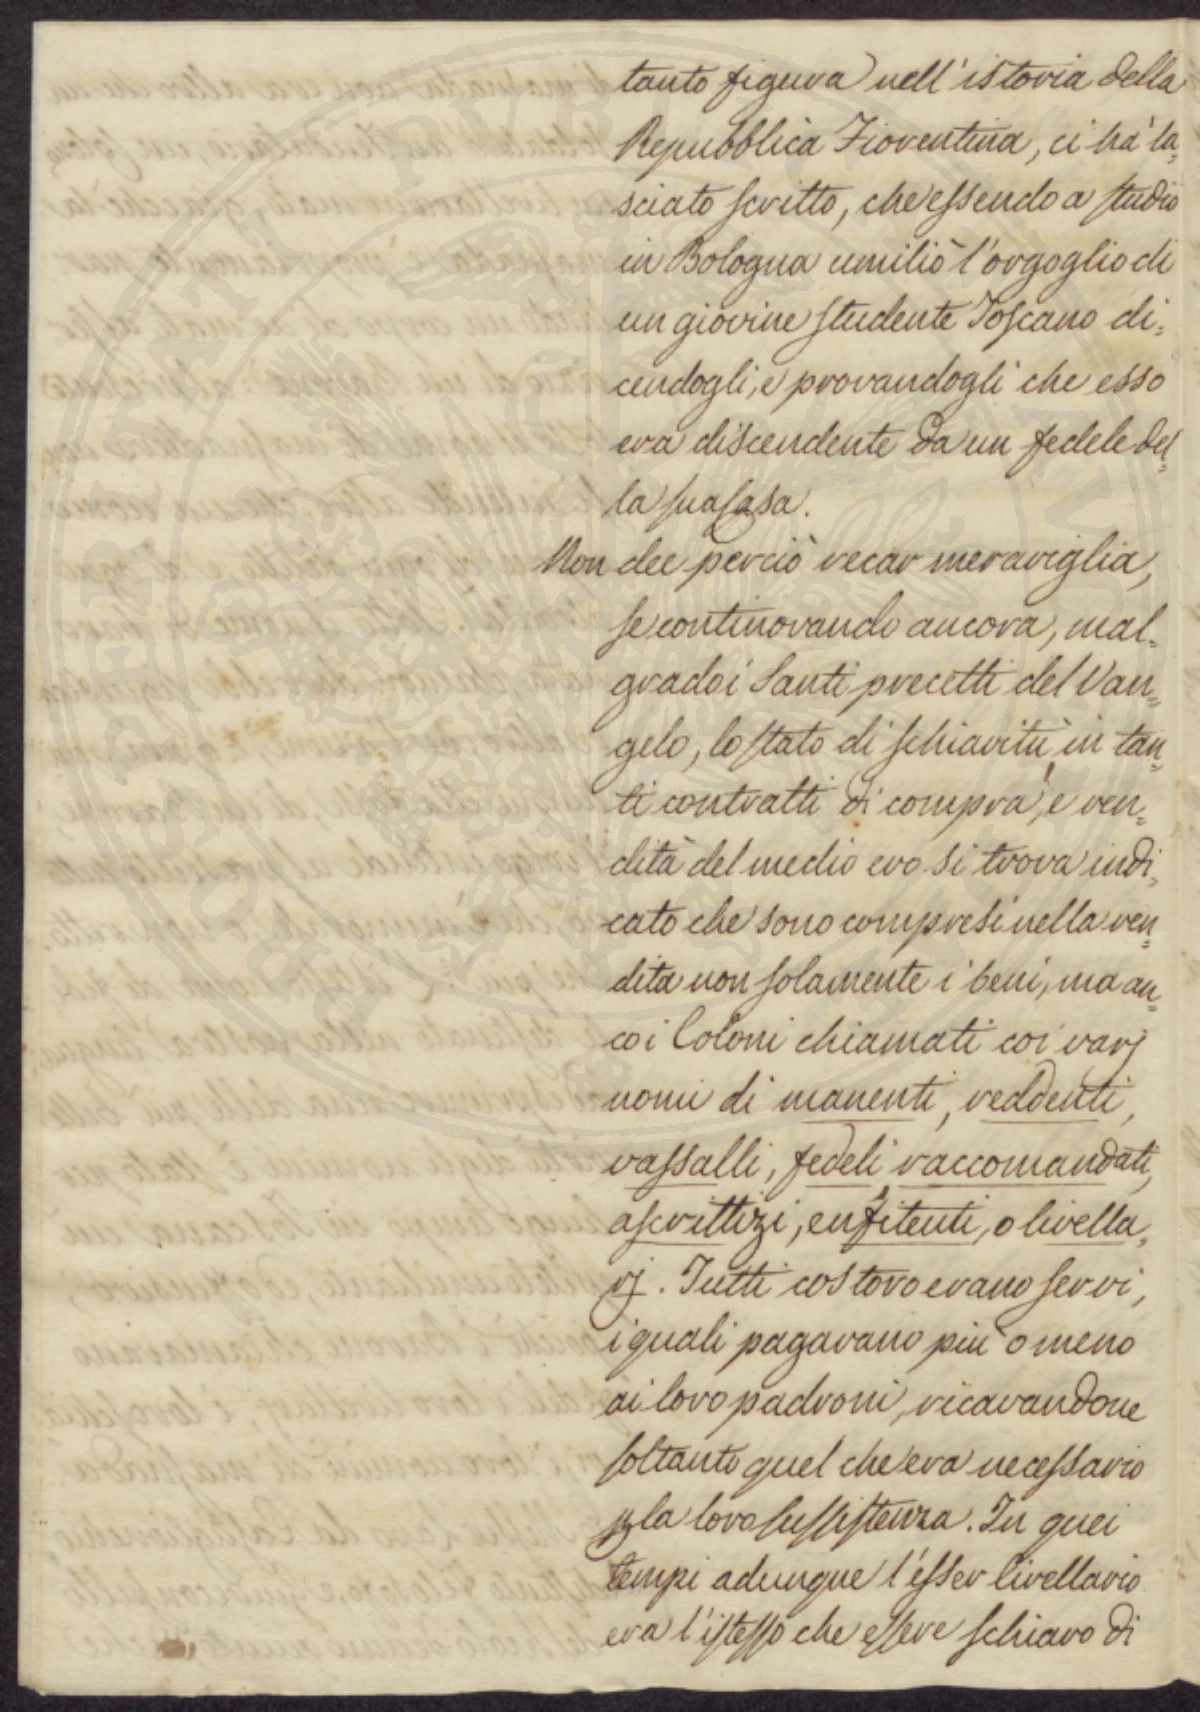 tanto figura nell'istoria della
Repubblica Fiorentina, ci há la=
sciato scritto, che essendo a studio
in Bologna umiliò l'orgoglio di
un giovine studente Toscano di=
cendogli, e provandogli che esso
era discendente da un fedele del=
la sua Casa.
Non dee perciò recar meraviglia,
se continovando ancora, mal=
grado i Santi precetti del Van=
gelo, lo stato di schiavitù, in tan=
ti contratti di compra, e ven=
dita del medio evo si trova indi=
cato che sono compresi nella ven=
dita non solamente i beni, ma an=
co i Coloni chiamati coi varj
nomi di manenti, reddenti,
vassalli, fedeli, raccomandati,
ascrittizi, enfitenti, o livella=
rj. Tutti costoro erano servi,
i quali pagavano più o meno
ai loro padroni, ricavandone
soltanto quel che era necessario
p la loro sussistenza. In quei
tempi adunque l'esser livellario
era l'istesso che essere schiavo di